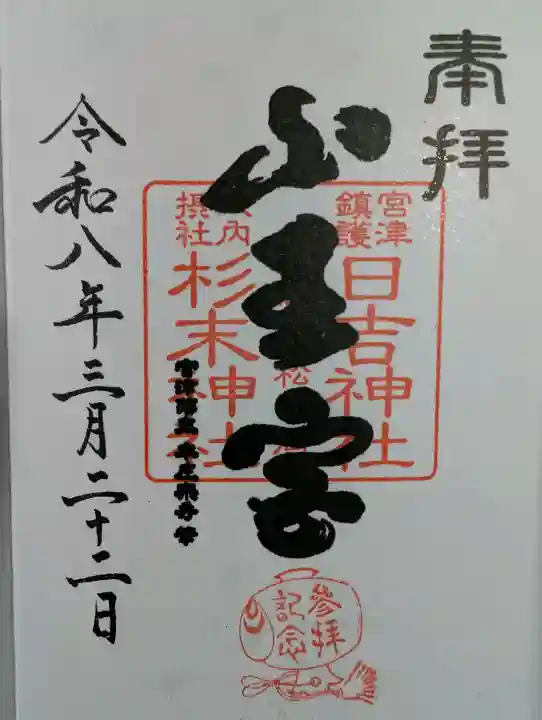 奉拝
山王宮
宮津
鎮護
日吉神社
内
摂社
杉末神社
松
令和八年三月二十二日
参拝
記念